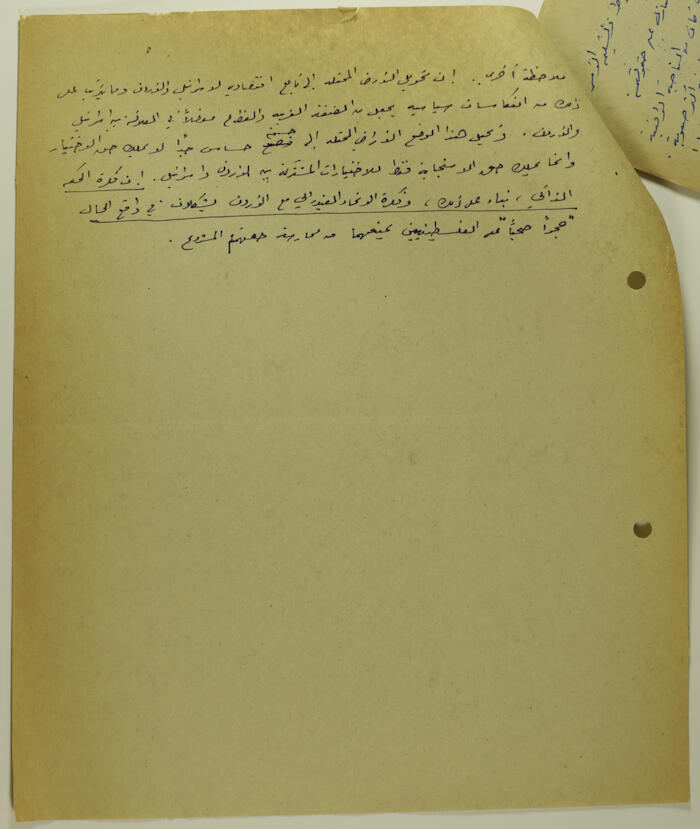 ملاحظة أخرى .. إن تحويل الأرض المحتلة إلى تابع اقتصادي لاسرائيل والأردن وما يترتب على
ذلك من انعكاسات سياسية يجعل من الضفة الغربية والقطاع مفصلاً في العلاقة بين اسرائيل
والأردن . ويحيل هذا الوضع الأراضي المحتلة إلى حساس جداً لا يملك حق الاختيار
وانما يملك حق الاستجابة فقط للاختيارات المشتركة بين الأردن واسرائيل . إن فكرة الحكم
الذاتي ، بناء على ذلك ، وفكرة الاتحاد الفيدرالي مع الأردن يشكلان في واقع الحال
"حجراً صحياً" على الفلسطينيين يمنعهما من ممارسة حقهم المشروع .